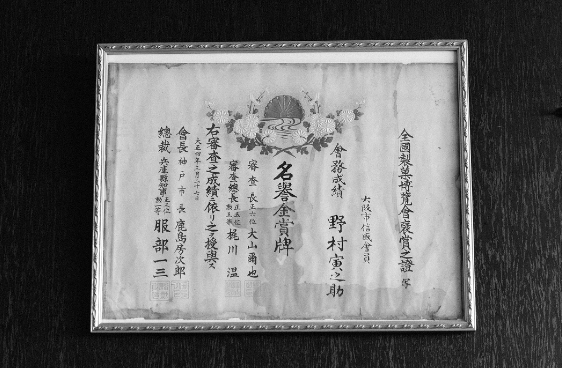 全國製菓博覽會褒賞之證
大阪市信盛會員
會務成績 野村寅之助
名譽金賞牌
審査長 正六位 大山爾也
審査總長 梶川 温
右審査之成績ニ依リ之ヲ授與ス
會長 神戸市長 鹿島房次郎
總裁 兵庫縣知事 服部一三